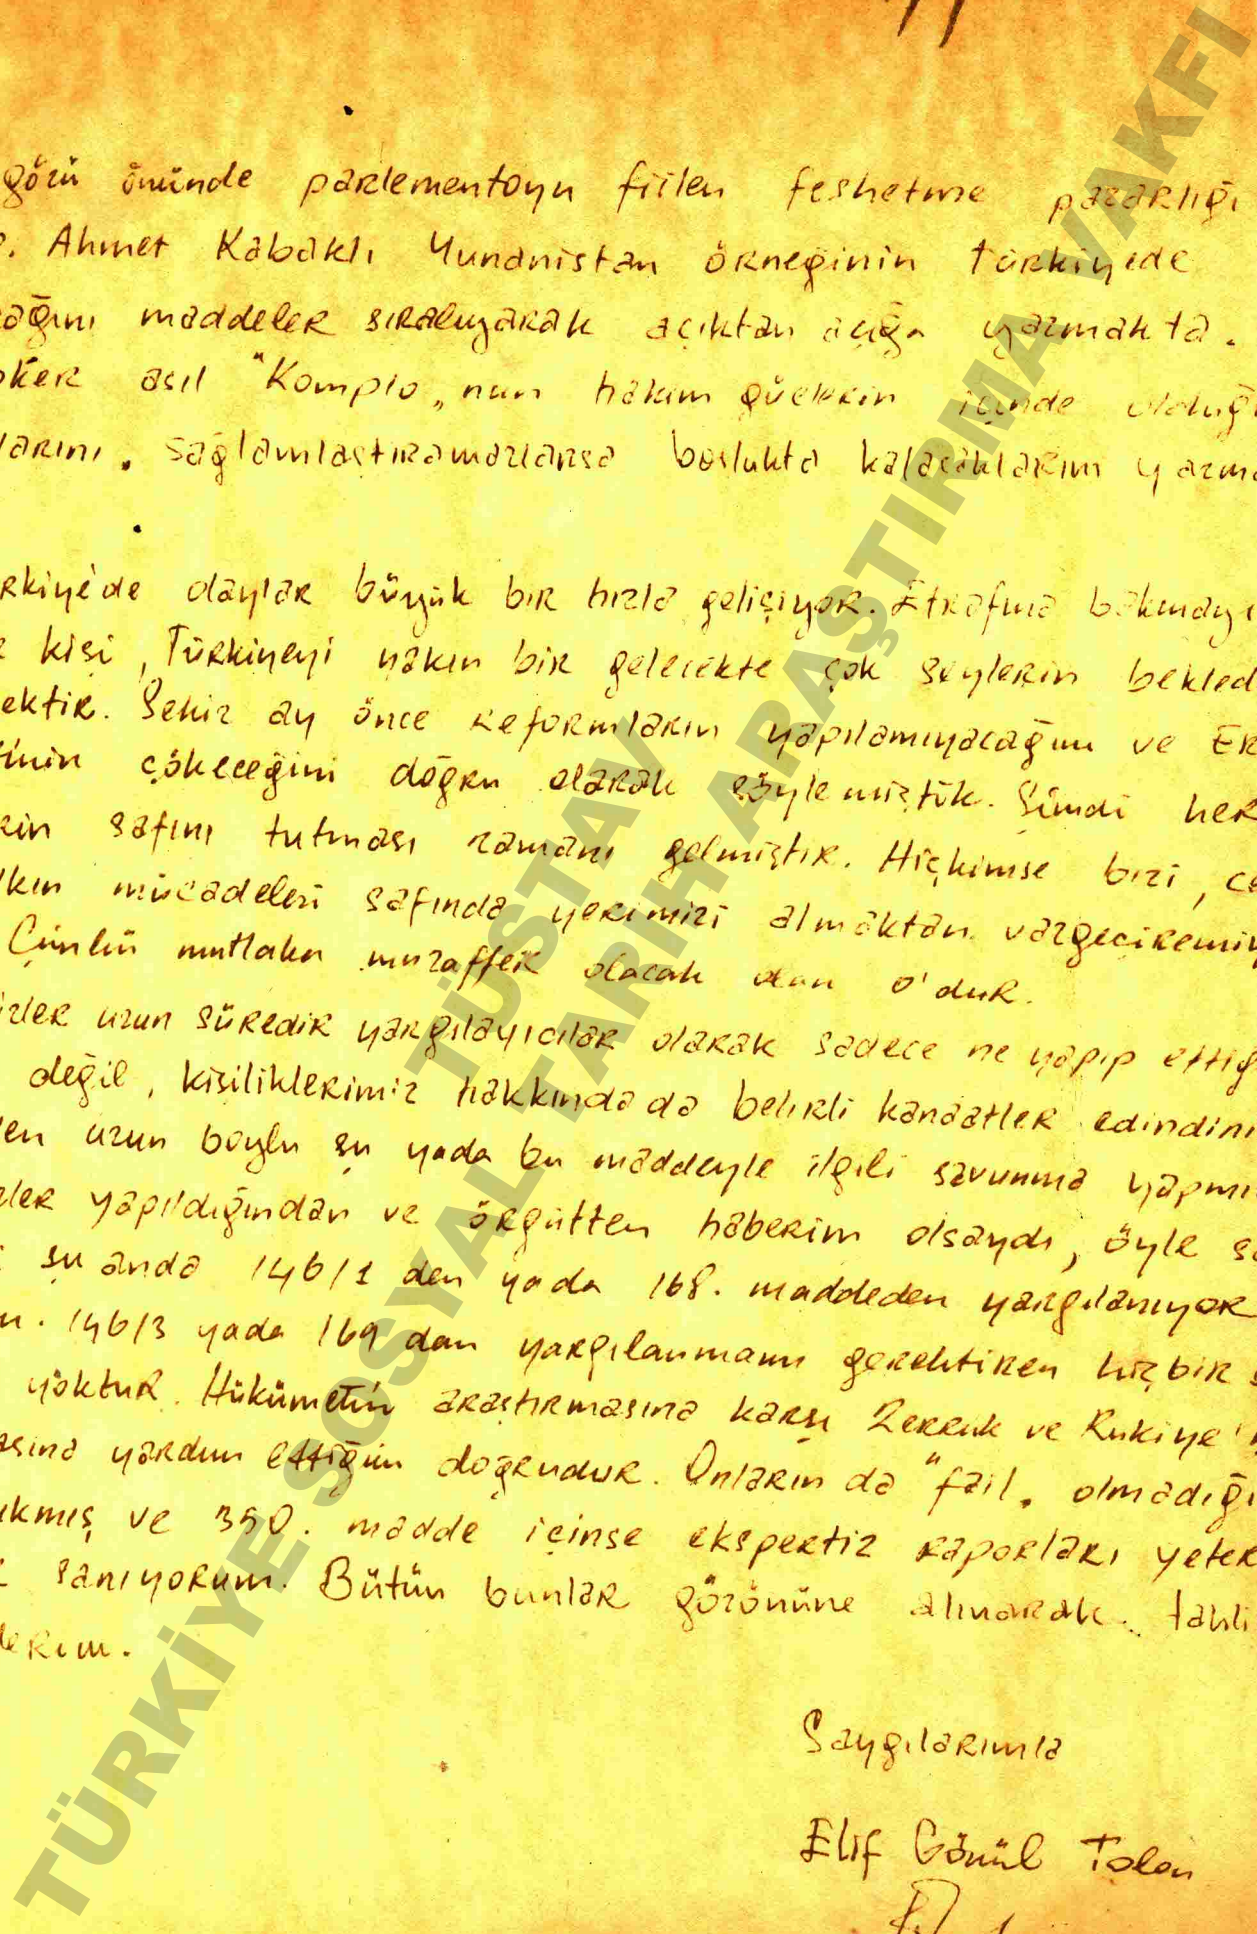 gözü önünde parlementoyu fiilen feshetme pazarlığı
. Ahmet Kabaklı Yunanistan örneğinin Türkiyede
ağını maddeler sıralıyarak açıktan açığa yazmakta.
ker asıl "Komplo„nun hakim güçlerin içinde olduğ
larını. sağlamlaştıramazlarsa boşlukta kalacaklarını yazma
rkiye'de olaylar büyük bir hızla gelişiyor. Etrafına bakmayı
kişi, Türkiyeyi yakın bir gelecekte çok şeylerin bekled
ektir. Sekiz ay önce reformların yapılamıyacağını ve ER
inin çökeceğini doğru olarak söylemiştik. Şimdi her
kin safını tutması zamanı gelmiştir. Hiçkimse bizi, ce
lkın mücadelesi safında yerimizi almaktan vazgeçiremiy
Çünkü mutlaka muzaffer olacak olan o'dur.
izler uzun süredir yargılayıcılar olarak sadece ne yapıp ettiğ
değil, kişiliklerimiz hakkında da belirli kanaatler edindini
en uzun boylu şu yada bu maddeyle ilgili savunma yapmı
ler yapıldığından ve örgütten haberim olsaydı, öyle sa
şu anda 146/1 den yada 168. maddeden yargılanıyor
. 146/3 yada 169 dan yargılanmamı gerektiren hiçbir s
yoktur. Hükümetin araştırmasına karşı Zerruk ve Rukiye'n
asına yardım ettiğim doğrudur. Onların da "fail„ olmadığı
kmış ve 350. madde içinse ekspertiz raporları yeter
sanıyorum. Bütün bunlar gözönüne alınarak tahli
derim.
Saygılarımla
Elif Gönül Tolon
TÜSTAV
TÜRKİYE SOSYAL TARİH ARAŞTIRMA VAKFI